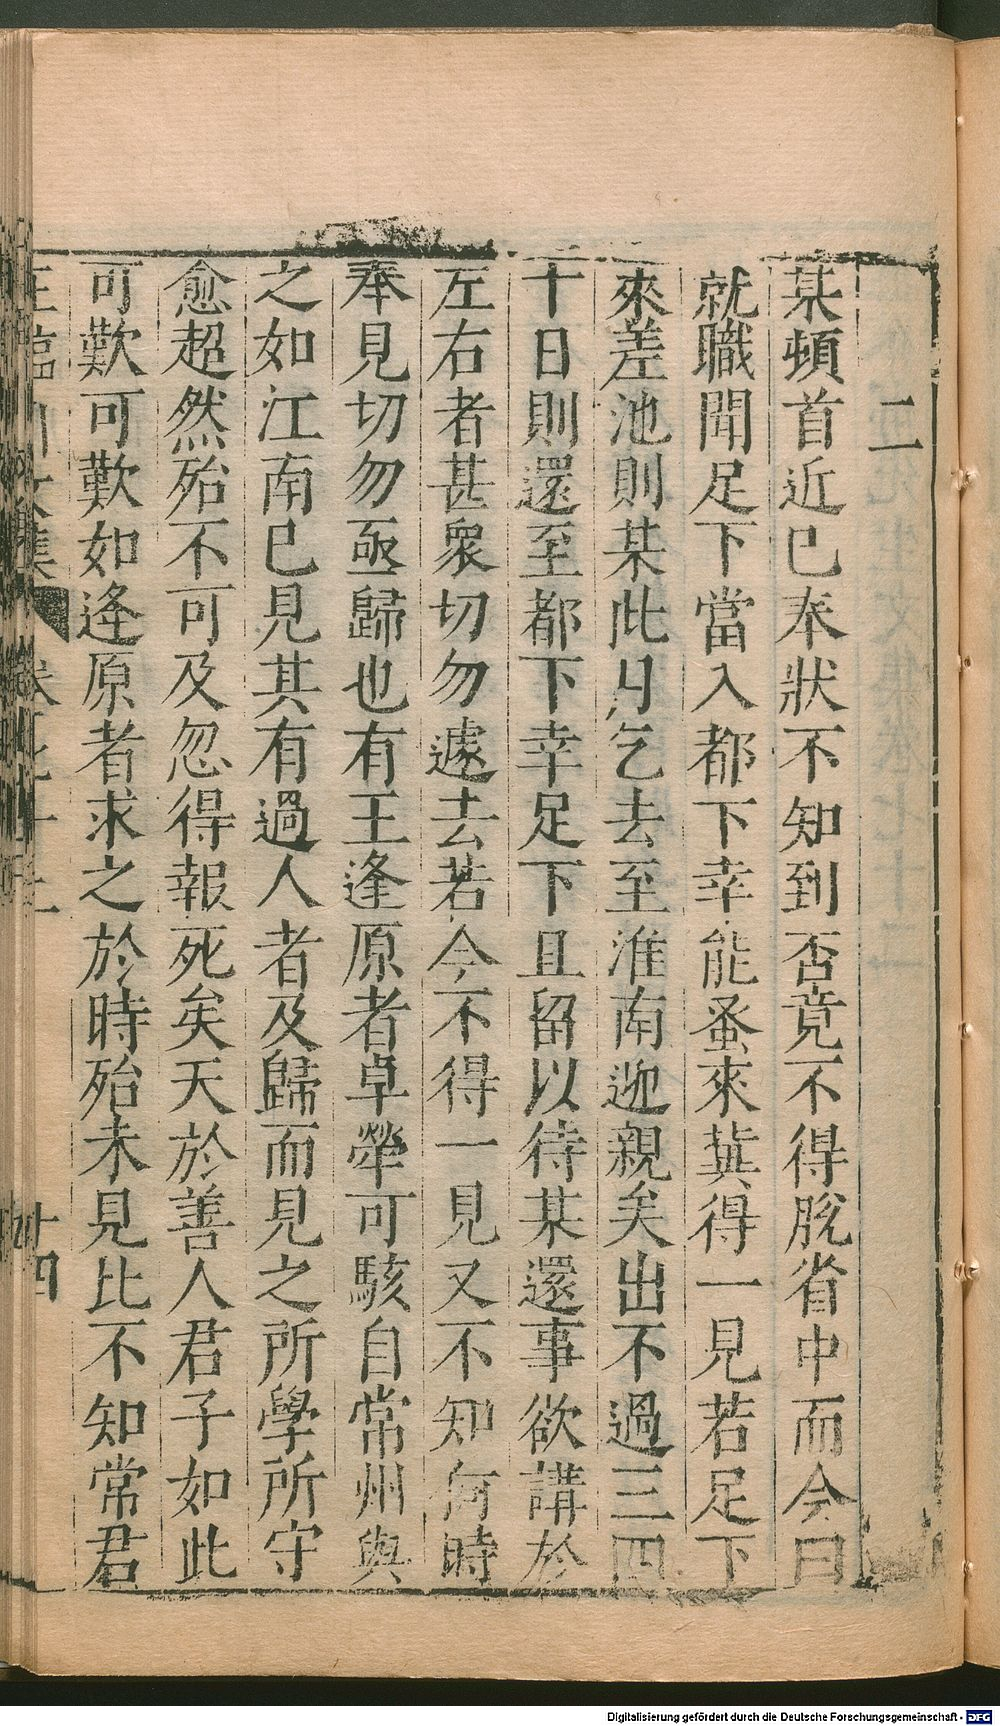 二
某頓首近已奉狀不知到否竟不得脫省中而今日
就職聞足下當入都下幸能蚤來冀得一見若足下
來差池則某此月乞去至淮南迎親矣出不過三四
十日則還至都下幸足下且留以待某還事欲講於
左右者甚衆切勿遽去若今不得一見又不知何時
奉見切勿亟歸也有王逢原者卓犖可駭自常州與
之如江南已見其有過人者及歸而見之所學所守
愈超然殆不可及忽得報死矣天於善人君子如此
可歎可歎如逢原者求之於時殆未見比不知常君
王臨川文集 卷 十四
Digitalisierung gefördert durch die Deutsche Forschungsgemeinschaft - DFG